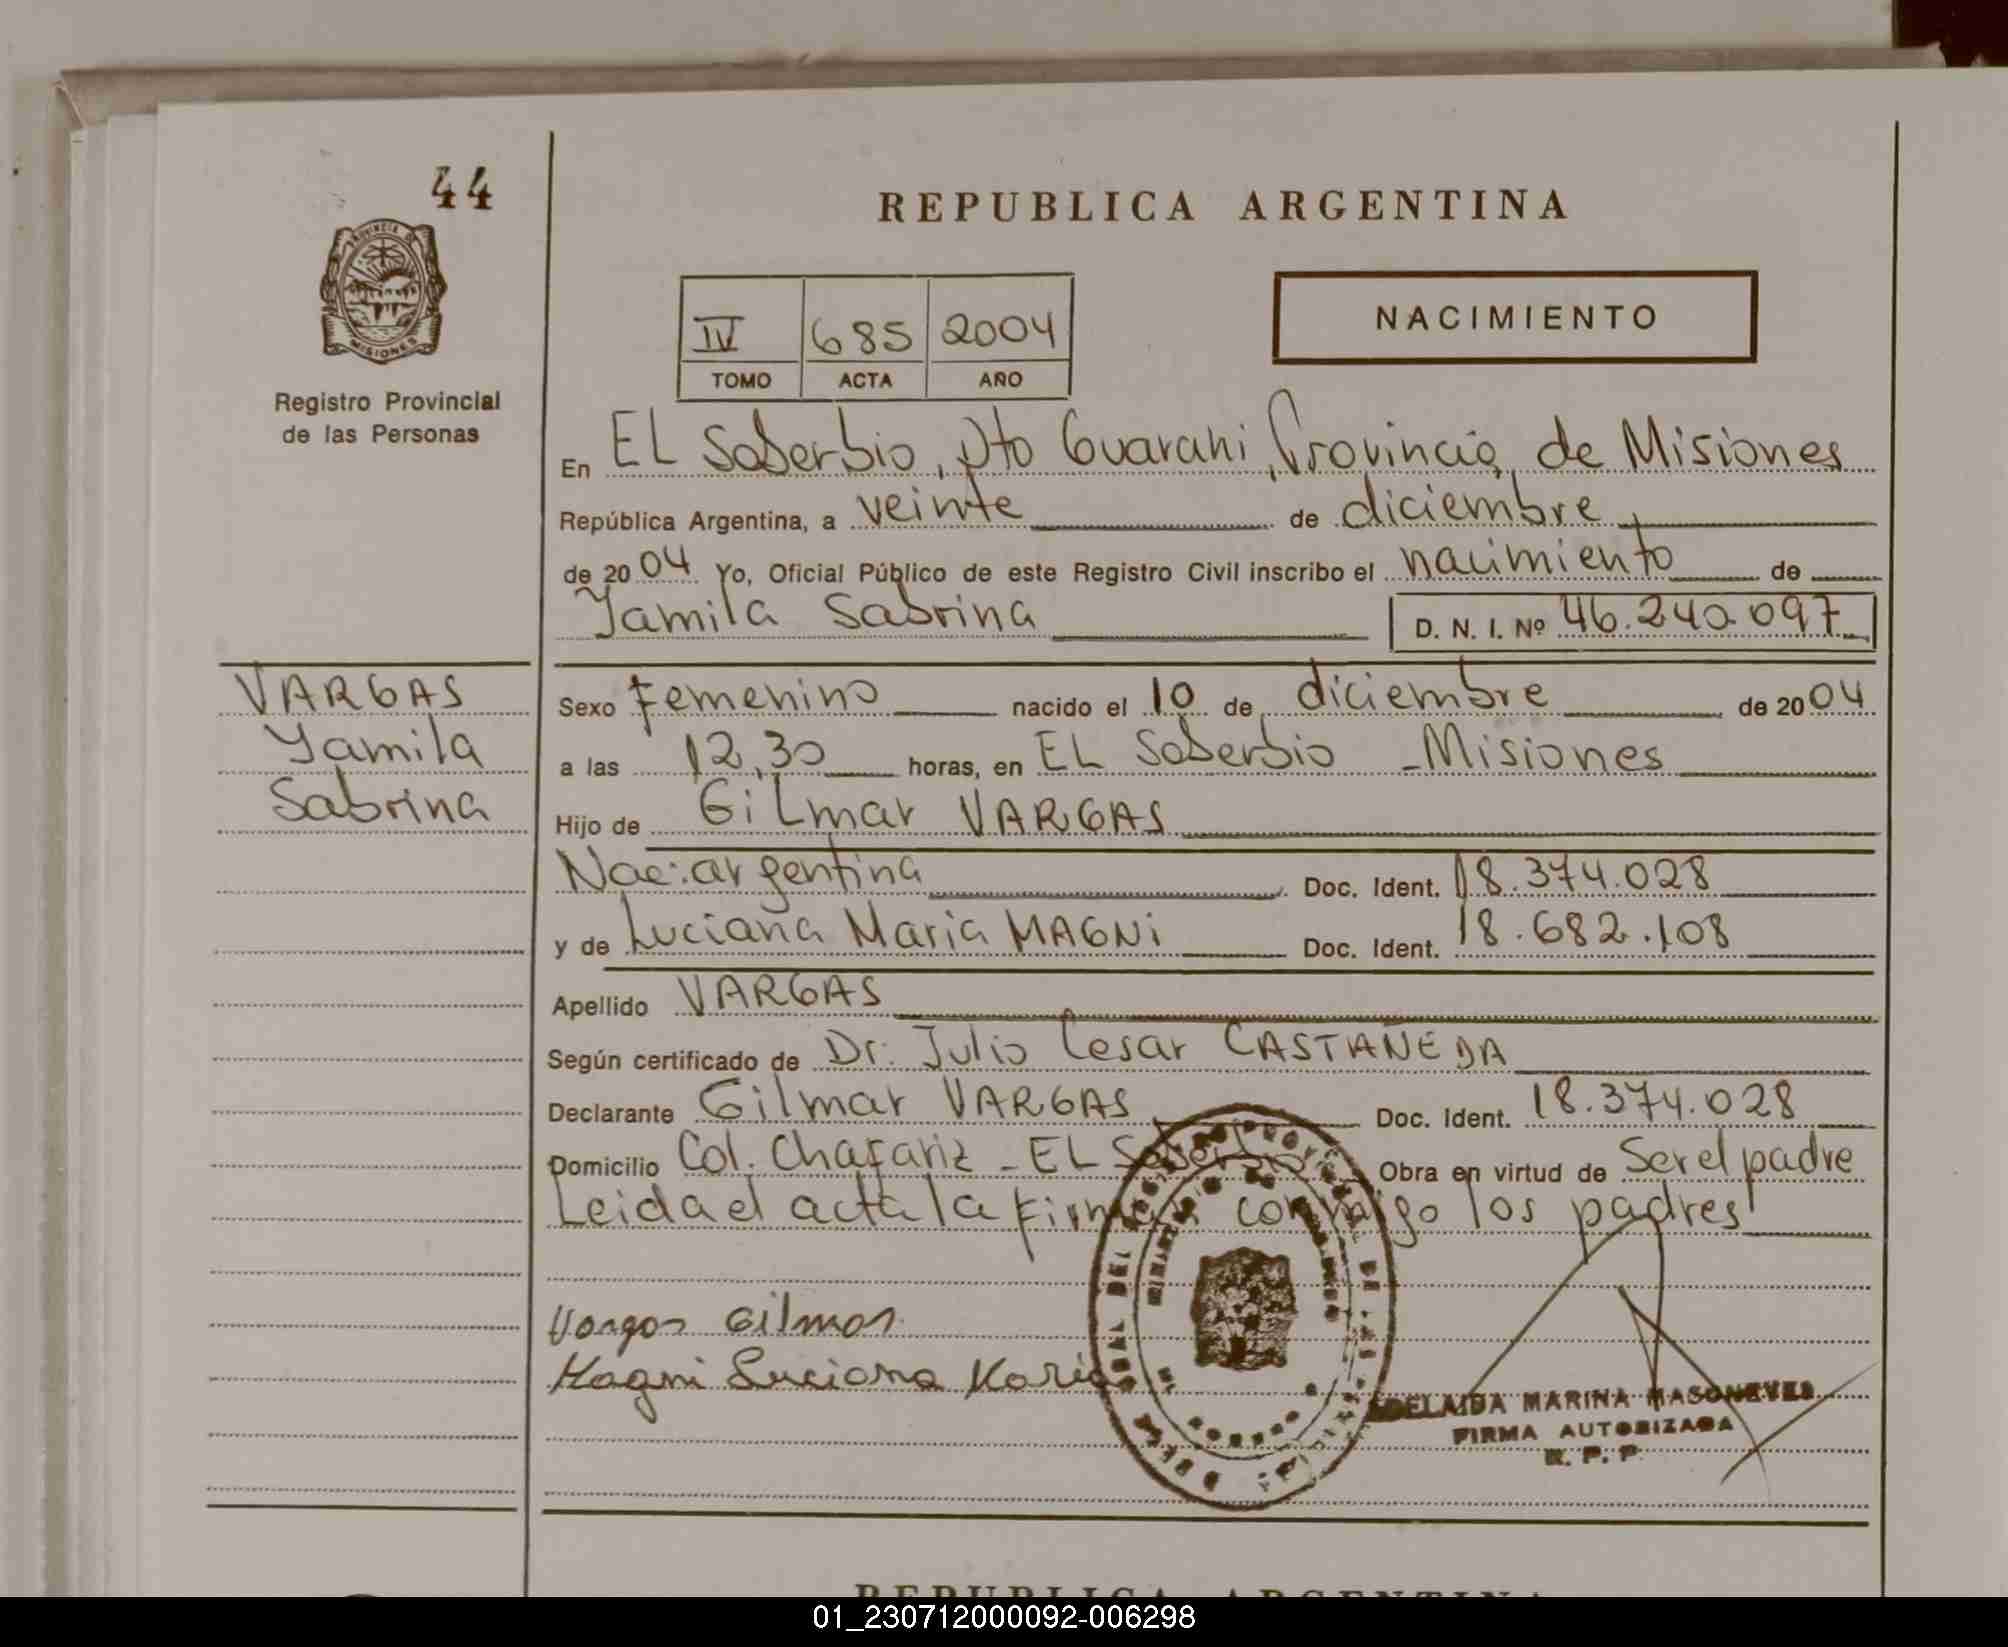 44
REPUBLICA ARGENTINA
PROVINCIA DE
MISIONES
Registro Provincial
de las Personas
IV 685 2004
TOMO ACTA AÑO
NACIMIENTO
En EL Soberbio, Dto Guarani, Provincia de Misiones
República Argentina, a veinte de diciembre
de 2004 Yo, Oficial Público de este Registro Civil inscribo el nacimiento de
Yamila Sabrina D. N. I. Nº 46.240.097
VARGAS
Yamila
Sabrina
Sexo Femenino nacido el 10 de diciembre de 2004
a las 12,30 horas, en EL Soberbio - Misiones
Hijo de Gilmar VARGAS
Nac: argentina Doc. Ident. 18.374.028
y de Luciana Maria MAGNi Doc. Ident. 18.682.108
Apellido VARGAS
Según certificado de Dr. Julio Cesar CASTAÑEDA
Declarante Gilmar VARGAS Doc. Ident. 18.374.028
Domicilio Col. Chafariz - EL Soberbio Obra en virtud de Ser el padre
Leida el acta la firman conmigo los padres
Vargas Gilmar
Magni Luciana Maria
ADELAIDA MARINA MASONEVES
FIRMA AUTORIZADA
R. P. P.
REPUBLICA ARGENTINA
01_230712000092-006298